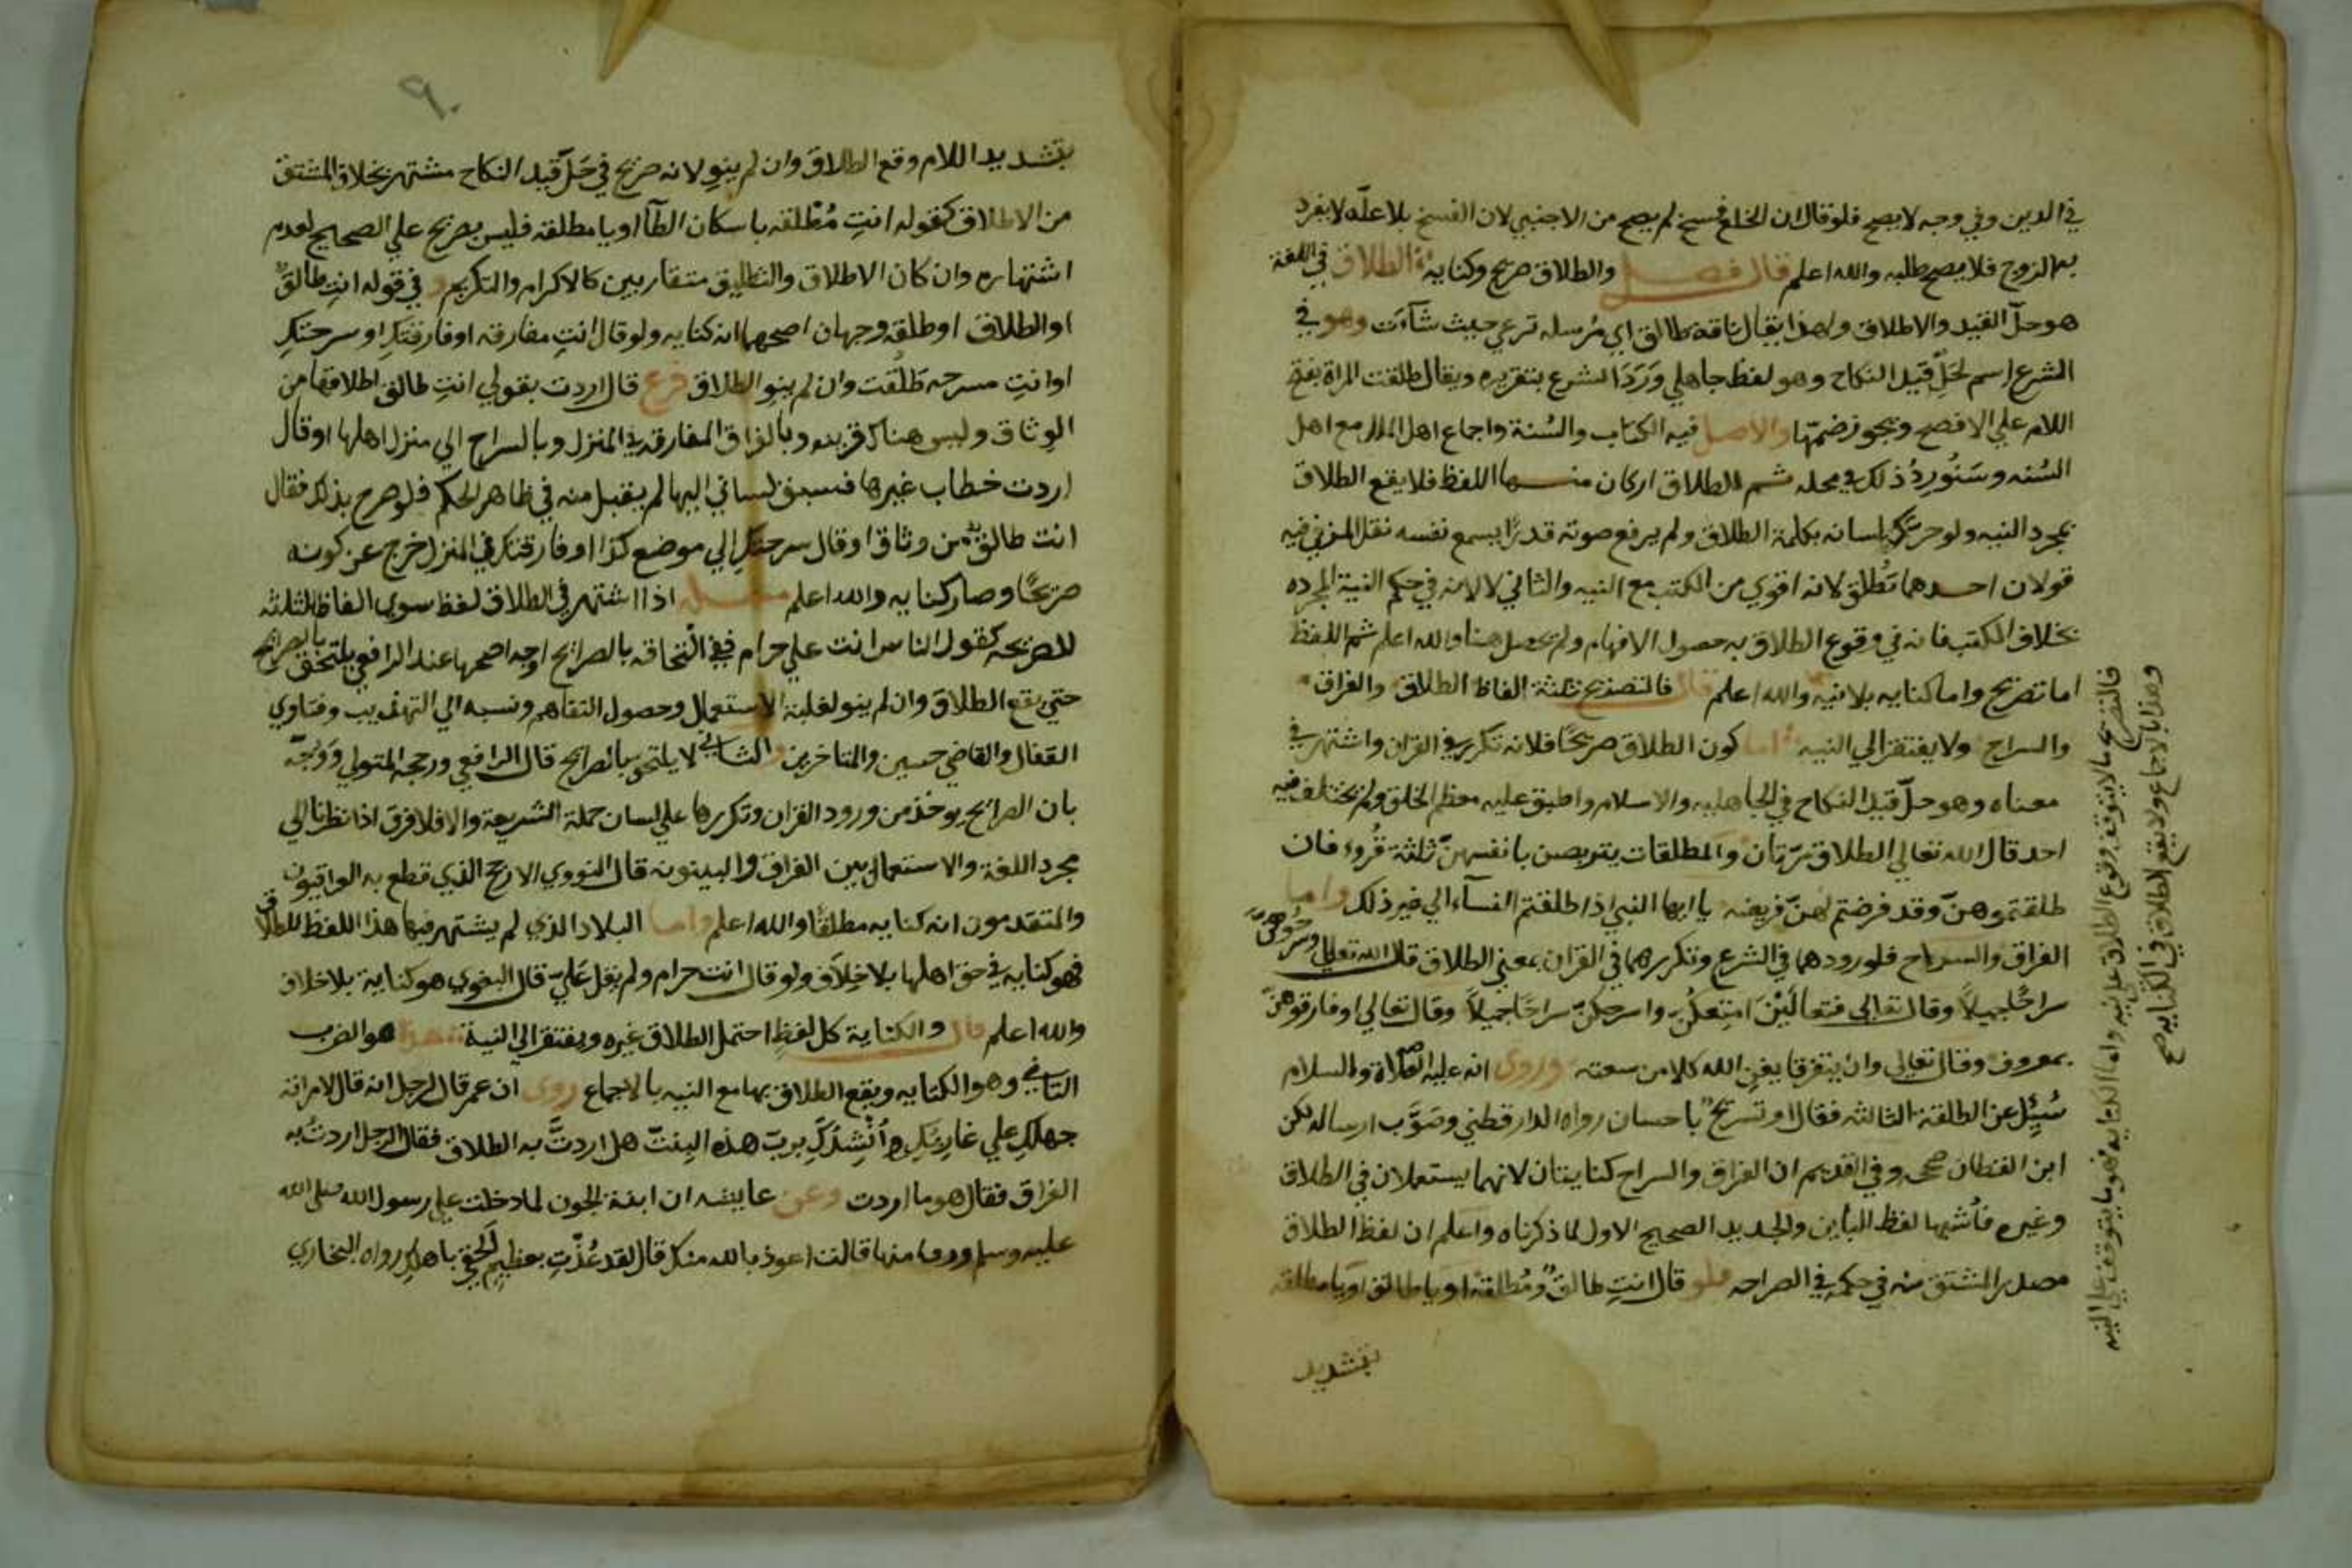 في الدين وفي وجه لا يصح فلو قال ان الخلع فسخ لم يصح من الاجنبي لان الفسخ بلا علة لا ينفرد
به الزوج فلا يصح طلبه والله اعلم قال فصل والطلاق صريح وكناية الطلاق في اللغة
هو حل القيد والاطلاق ولهذا يقال ناقة طالق اي مرسله ترعي حيث شآءت وهو في
الشرع اسم لحل قيد النكاح وهو لفظ جاهلي ورد الشرع بتقريره ويقال طلقت المراة بفتح
اللام علي الافصح ويجوز ضمها والاصل فيه الكتاب والسنة واجماع اهل الملل مع اهل
السنه وسنورد ذلك في محله ثم للطلاق اركان منها اللفظ فلا يقع الطلاق
بمجرد النيه ولو حرك لسانه بكلمة الطلاق ولم يرفع صوته قدرا يسمع نفسه نقل المزني فيه
قولان احدهما تطلق لانه اقوي من الكتب مع النيه والثاني لا لانه في حكم النية المجرده
بخلاف الكتب فانه في وقوع الطلاق به حصول الافهام ولم يحصل هنا والله اعلم ثم اللفظ
اما صريح واما كنايه بلا نيه والله اعلم قال فالصريح ثلثة الفاظ الطلاق والفراق
والسراح ولا يفتقر الي النيه اما كون الطلاق صريحا فلانه تكرر في القران واشتهر في
معناه وهو حل قيد النكاح في الجاهليه والاسلام واطبق عليه معظم الخلق ولم يختلف فيه
احد قال الله تعالي الطلاق مرتان والمطلقات يتربصن بانفسهن ثلثة قروء فان
طلقتموهن وقد فرضتم لهن فريضه يا ايها النبي اذا طلقتم النسآء الي غير ذلك واما
الفراق والسراح فلورودهما في الشرع وتكررهما في القران بمعني الطلاق قال الله تعالي وسرحوهن
سراحا جميلا وقال تعالي فتعالين امتعكن واسرحكن سراحا جميلا وقال تعالي او فارقوهن
بمعروف وقال تعالي وان يتفرقا يغن الله كلا من سعته وروي انه عليه الصلاة والسلام
سئل عن الطلقة الثالثه فقال او تسريح باحسان رواه الدارقطني وصوب ارساله لكن
ابن القطان صححه وفي القديم ان الفراق والسراح كنايتان لانهما يستعملان في الطلاق
وغيره فأشبها لفظ البأين والجديد الصحيح الاول لما ذكرناه واعلم ان لفظ الطلاق
مصدر المشتق منه في حكمه في الصراحه فلو قال انت طالق ومطلقة او يا طالق او يا مطلقه
بتشديد
فالصريح ما لا يتوقف وقوع الطلاق علي نيه واما الكنايه فهو ما يتوقف علي النيه
وهذا بالاجماع ولا يقع الطلاق في الكنايه صح
٩٠
بتشديد اللام وقع الطلاق وان لم ينو لانه صريح في حل قيد النكاح مشتهر بخلاف المشتق
من الاطلاق كقوله انت مطلقه باسكان الطآ او يا مطلقه فليس بصريح علي الصحيح لعدم
اشتهاره وان كان الاطلاق والتطليق متقاربين كالاكرام والتكريم و في قوله انت طالق
او الطلاق او طلقه وجهان اصحهما انه كنايه ولو قال انت مفارقه او فارقتك او سرحتك
او انت مسرحه طلقت وان لم ينو الطلاق فرع قال اردت بقولي انت طالق اطلاقها من
الوثاق وليس هناك قرينه وبالفراق المفارقه في المنزل وبالسراح الي منزل اهلها او قال
اردت خطاب غيرها فسبق لساني اليها لم يقبل منه في ظاهر الحكم فلو صرح بذلك فقال
انت طالق من وثاق او قال سرحتك الي موضع كذا او فارقتك في المنزل خرج عن كونه
صريحا وصار كنايه والله اعلم مسئله اذا اشتهر في الطلاق لفظ سوي الفاظ الثلثه
الصريحه كقول الناس انت علي حرام ففي التحاقه بالصرائح اوجه اصحها عند الرافعي يلتحق بالصرائح
حتي يقع الطلاق وان لم ينو لغلبة الاستعمال وحصول التفاهم ونسبه الي التهذيب وفتاوي
القفال والقاضي حسين والمتاخرين والثاني لا يلتحق بالصرائح قال الرافعي ورجحه المتولي ووجه
بان الصرائح يوخذ من ورود القران وتكررها علي لسان حملة الشريعة والا فلا فرق اذا نظرنا الي
مجرد اللغة والاستعمال بين الفراق والبينونه قال النووي الارجح الذي قطع به العراقيون
والمتقدمون انه كنايه مطلقا والله اعلم واما البلاد الذي لم يشتهر فيها هذا اللفظ للطلاق
فهو كنايه في حق اهلها بلا خلاف ولو قال انت حرام ولم يقل علي قال البغوي هو كناية بلا خلاف
والله اعلم قال والكناية كل لفظ احتمل الطلاق غيره ويفتقر الي النية هذا هو الضرب
الثاني وهو الكنايه ويقع الطلاق بها مع النيه بالاجماع روي ان عمر قال لرجل انه قال لامراته
حبلك علي غاربك أنشدك برب هذه البنت هل اردت به الطلاق فقال الرجل اردت به
الفراق فقال هو ما اردت وعن عايشه ان ابنة الجون لما دخلت علي رسول الله صلى الله
عليه وسلم ودنا منها قالت اعوذ بالله منك قال لقد عذت بعظيم الحقي باهلك رواه البخاري